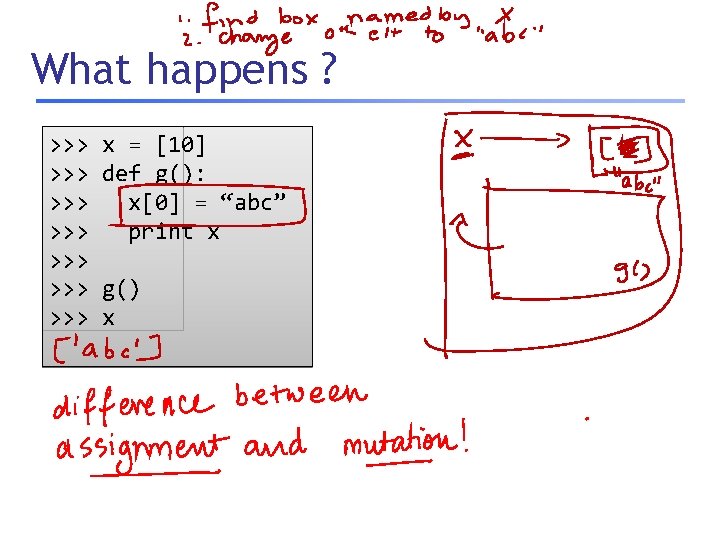 1. find box named by x
2. change 0th elt to "abc"
What happens ?
>>> x = [10]
>>> def g():
>>> x[0] = “abc”
>>> print x
>>>
>>> g()
>>> x
['abc']
x
[ ]
"abc"
g()
difference between
assignment and mutation!